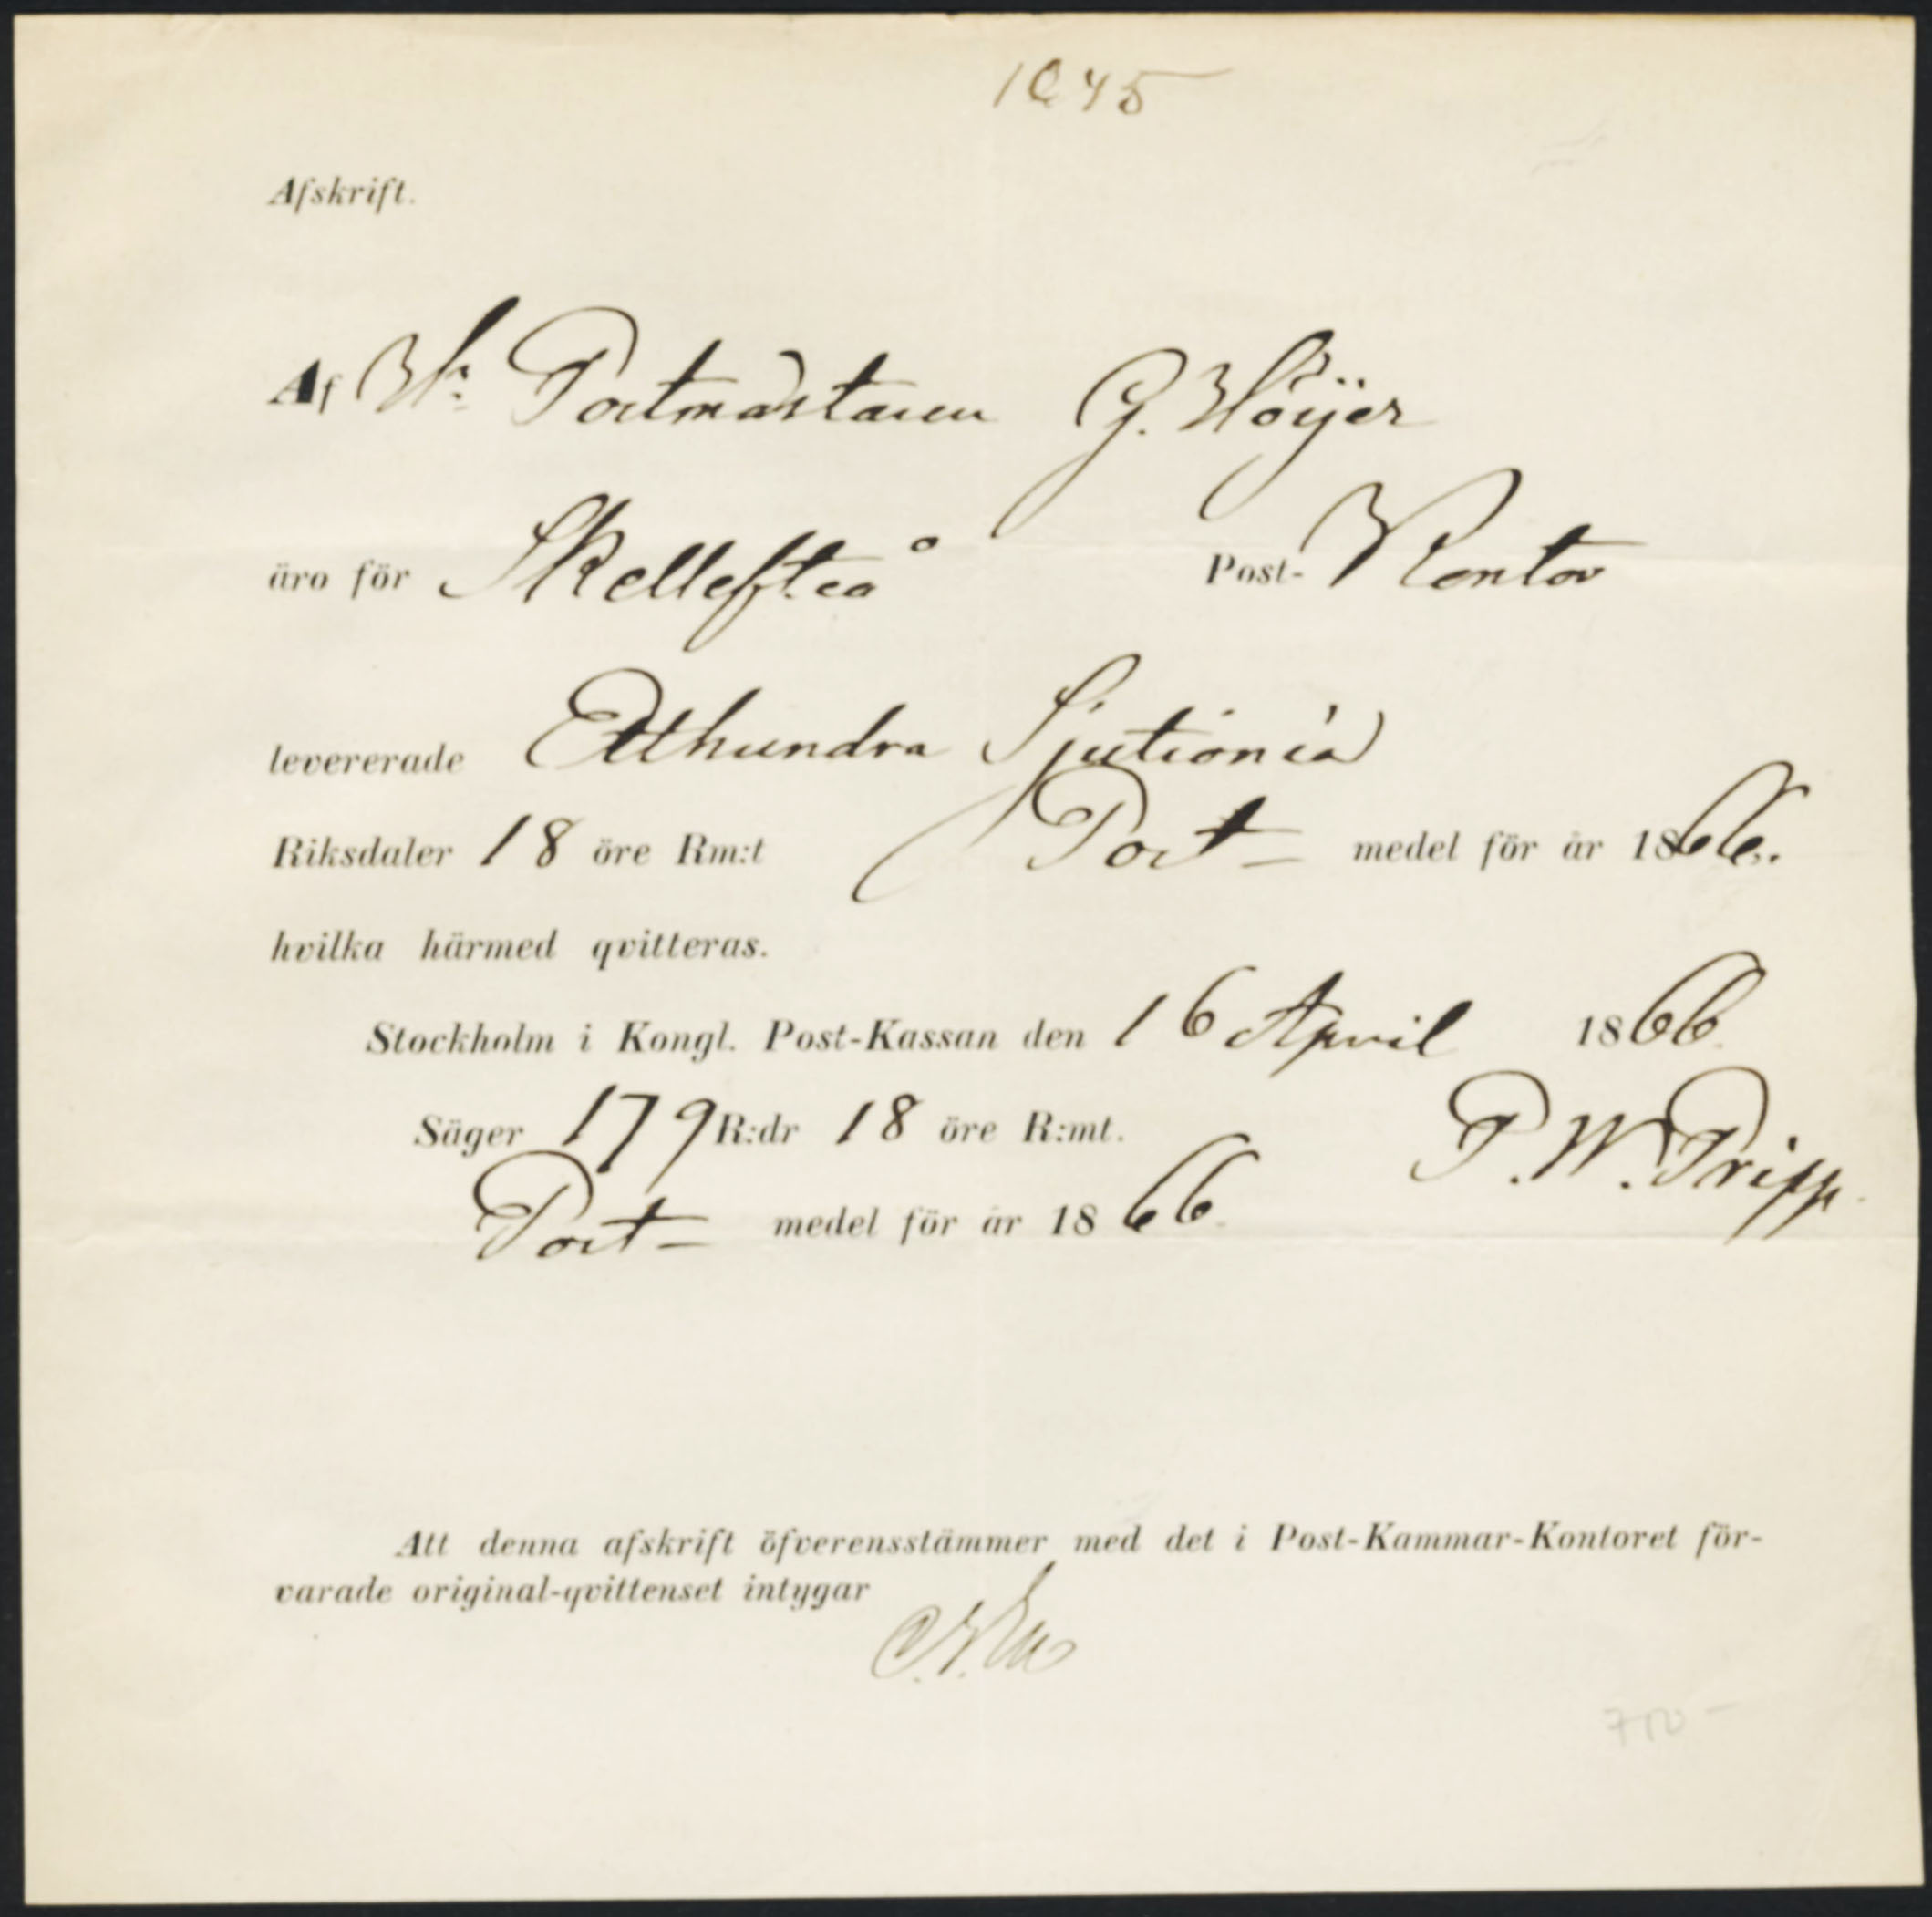 1045
Afskrift.
Af Hr Postmästaren G. Höijer
äro för Skellefteå Post-Kontor
levererade Etthundra Sjutionio
Riksdaler 18 öre Rm:t Post- medel för år 1866.
hvilka härmed qvitteras.
Stockholm i Kongl. Post-Kassan den 16 April 1866.
Säger 179 R:dr 18 öre R:mt. P. W. Tripp.
Post- medel för år 1866.
Att denna afskrift öfverensstämmer med det i Post-Kammar-Kontoret för-
varade original-qvittenset intygar